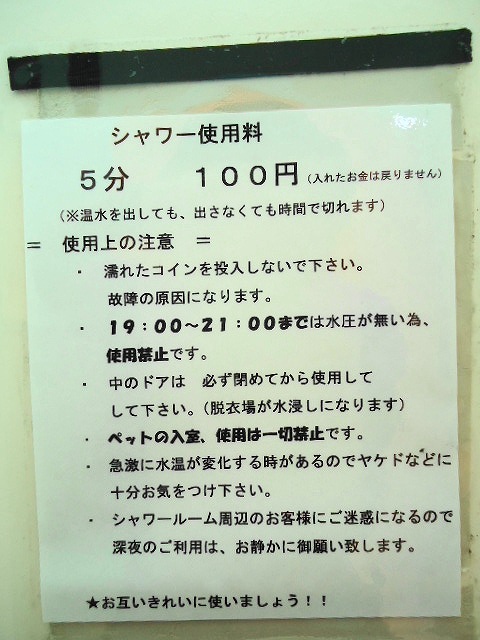 シャワー使用料
５分　　１００円（入れたお金は戻りません）
（※温水を出しても、出さなくても時間で切れます）
＝　使用上の注意　＝
・ 濡れたコインを投入しないで下さい。
故障の原因になります。
・ １９：００～２１：００までは水圧が無い為、
使用禁止です。
・ 中のドアは　必ず閉めてから使用して
して下さい。（脱衣場が水浸しになります）
・ ペットの入室、使用は一切禁止です。
・ 急激に水温が変化する時があるのでヤケドなどに
十分お気をつけ下さい。
・ シャワールーム周辺のお客様にご迷惑になるので
深夜のご利用は、お静かに御願い致します。
★お互いきれいに使いましょう！！